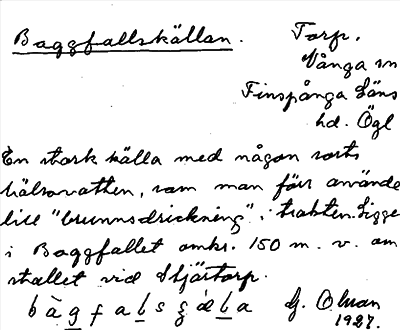 Baggfallskällan.
Torp.
Vånga sn
Finspånga läns
hd. Ögl
En stark källa med någon sorts
hälsovatten, som man förr använde
till "brunnsdrickning" i trakten. Ligger
i Baggfallet omkr. 150 m. v. om
stället vid Stjärtorp.
G. Olson
1927.